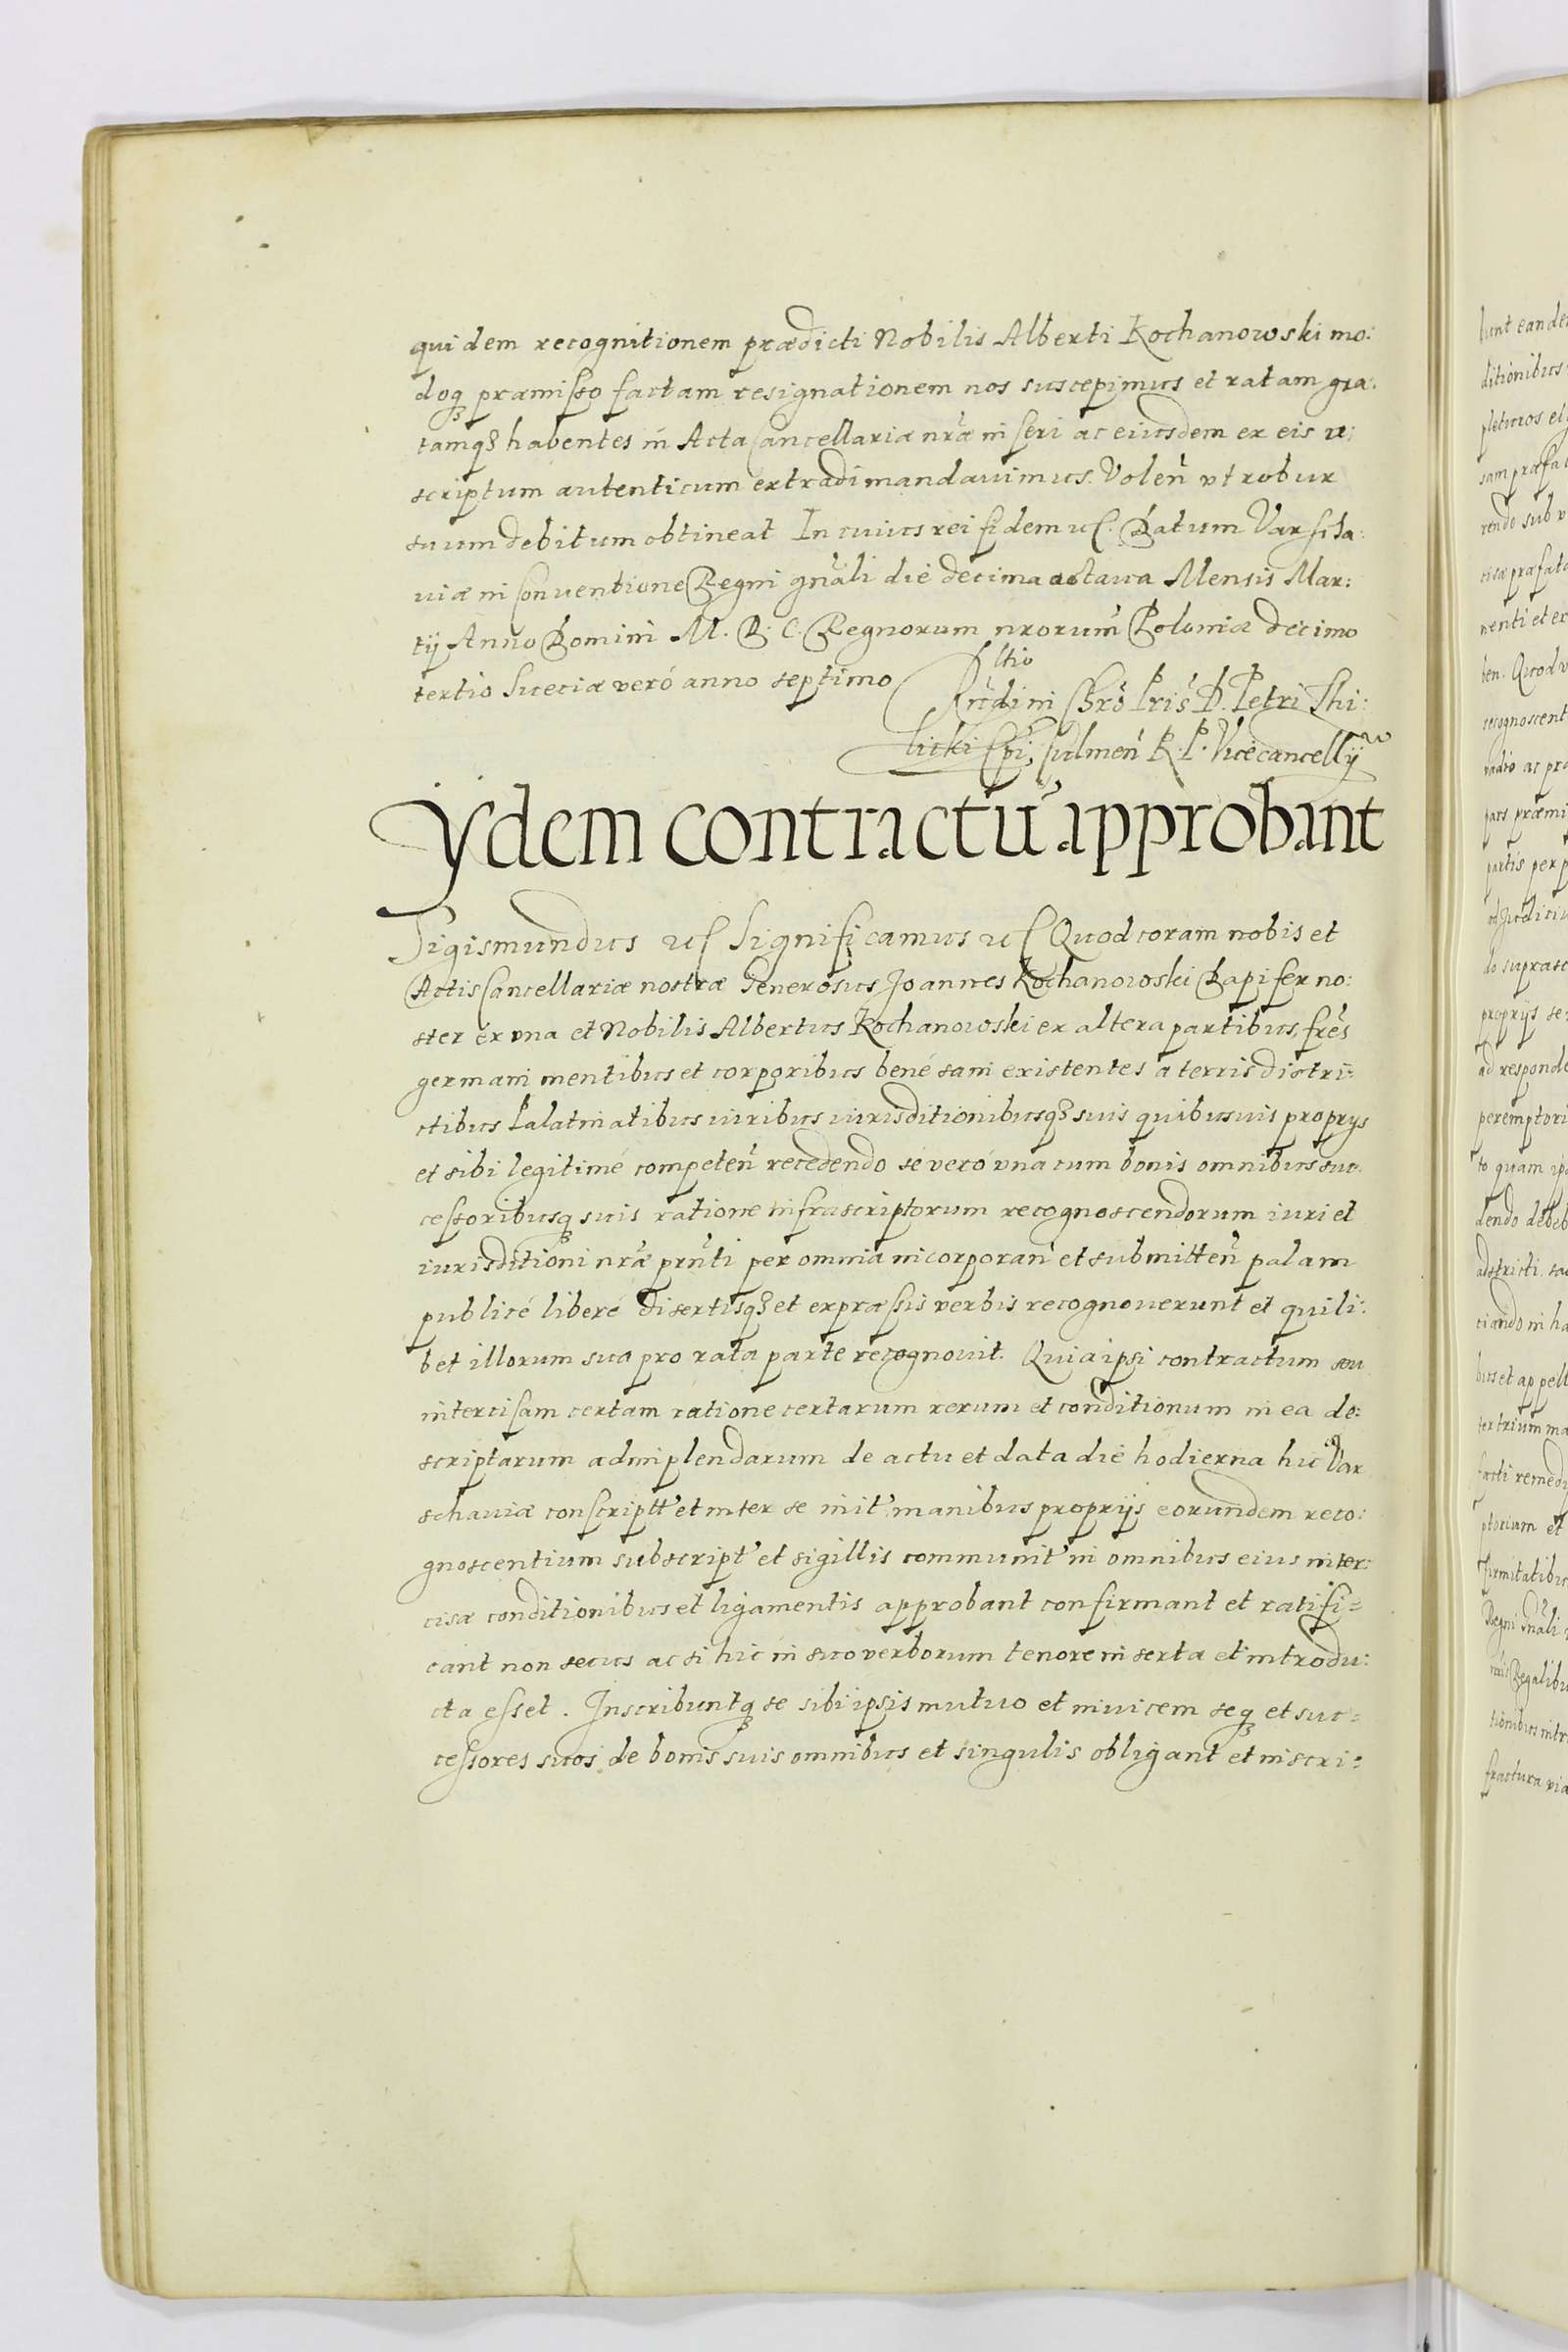 quidem recognitionem prædicti Nobilis Alberti Kochanowski mo:
doq præmisso factam resignationem nos suscepimus et ratam gra:
tamq habentes in Acta Cancellariæ nr̃æ inseri ac eiusdem ex eis re:
scriptum autenticum extradi mandauimus. Volen̄ vt robur
suum debitum obtineat In cuius rei fidem etc. Datum Varscha:
uiæ in Conuentione Regni gn̄ali die decima octaua Mensis Mar:
tij Anno Domini M. D. C. Regnorum nrorum̃ Poloniæ decimo
tertio Sueciæ veró anno septimo
Rn̄di in Chr̃o Pris̃ D. Petri Thi:
licki Ep̃i Culmen̄ R. P. Vicecancellÿ
Ydem contractu᷃ approbant
Sigismundus etc Significamus etc Quod coram nobis et
Actis Cancellariæ nostræ Generosus Joannes Kochanowski Dapifer no:
ster ex vna et Nobilis Albertus Kochanowski ex altera partibus, fr̃es
germani mentibus et corporibus bené sani existentes a terris distri=
ctibus Palatinatibus iuribus iurisditionibusq suis quibusuis proprijs
et sibi legitimé competen̄ recedendo se veró vna cum bonis omnibus suc:
cessoribusq suis ratione infrascriptorum recognoscendorum iuri et
iurisditioni nr̃æ prn̄ti per omnia incorporan̄ et submitten̄ palam
publicé liberé disertisq et expræssis verbis recognouerunt et quili:
bet illorum sua pro rata parte recognouit. Quia ipsi contractum seu
intercisam certam ratione certarum rerum et conditionum in ea de:
scriptarum adimplendarum de actu et data die hodierna hic Var
schauiæ conscriptt̃ et inter se init̃ manibus proprijs eorundem reco:
gnoscentium subscript̃ et sigillis communit̃ in omnibus eius inter:
cisæ conditionibus et ligamentis approbant confirmant et ratifi=
cant non secus ac si hic in suo verborum tenore inserta et introdu:
cta esset. Inscribuntq se sibi ipsis mutuo et inuicem seq et suc=
cessores suos de bonis suis omnibus et singulis obligant et inscri=